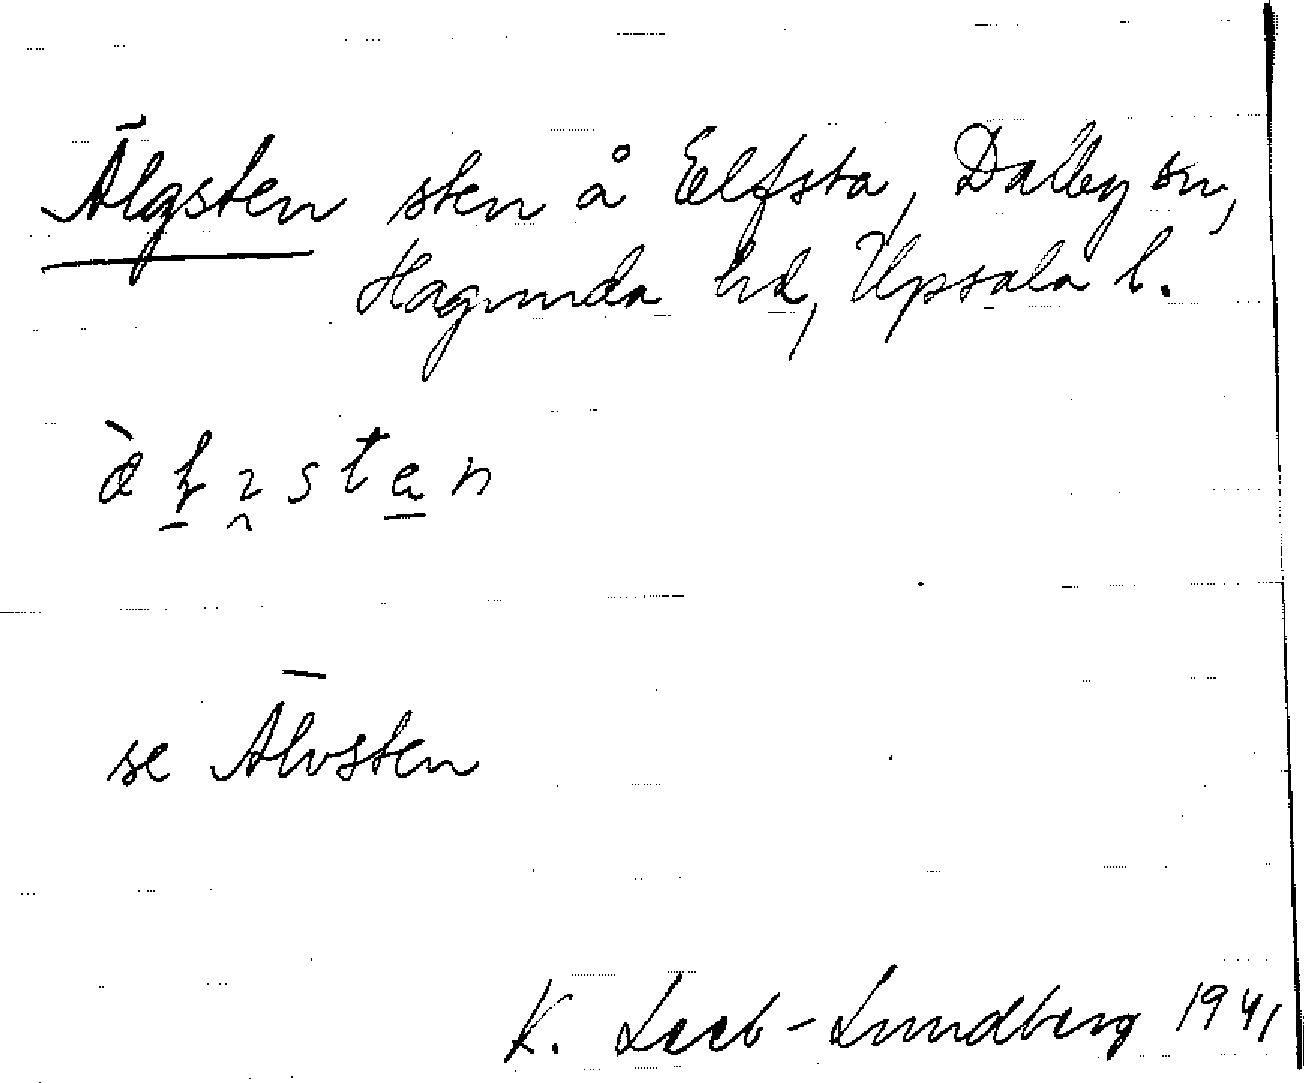 Älgsten sten å Elfsta, Dalby sn,
Hagunda hd, Upsala l.
se Älvsten
K. Leeb-Lundberg 1941